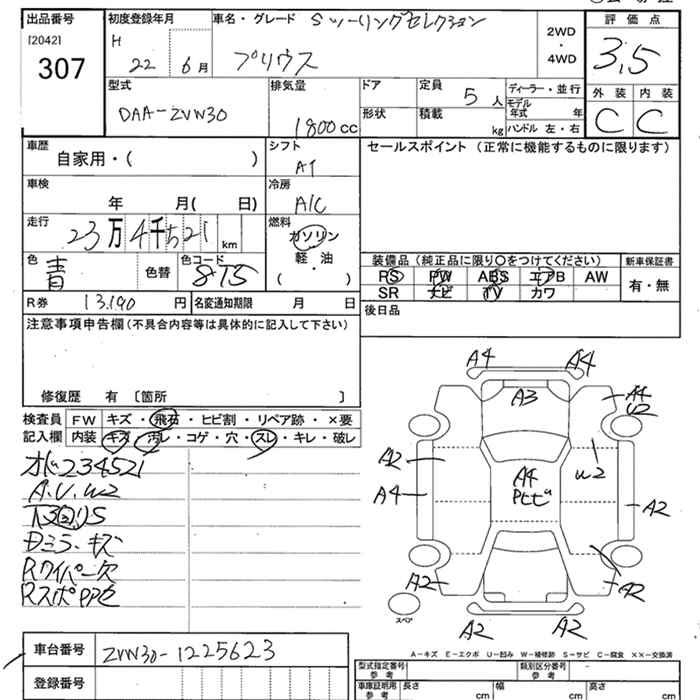 出品番号
[2042]
307
初度登録年月
H
22 6月
車名・グレード Sツーリングセレクション
プリウス
2WD
・
4WD
評価点
3,5
型式
DAA-ZVW30
排気量
1800cc
ドア
形状
定員 5人
積載 kg
ディーラー・並行
モデル年式 年
ハンドル 左・右
外装 内装
C C
車歴
自家用・( )
シフト
AT
セールスポイント(正常に機能するものに限ります)
車検
年 月( 日)
冷房
A/C
走行
23万4千521 km
燃料
ガソリン
軽・油
( )
色
青
色替
色コード
8T5
装備品(純正品に限り○をつけてください)
PS PW ABS エアB AW
SR ナビ TV カワ
新車保証書
有・無
R券 13.190円
名変通知期限 月 日
後日品
注意事項申告欄(不具合内容等は具体的に記入して下さい)
修復歴 有 [箇所 ]
検査員
記入欄
FW キズ・飛石・ヒビ割・リペア跡・×要
内装 キズ・汚レ・コゲ・穴・スレ・キレ・破レ
234521
A.U.W2
Dミラーキズ
Rワイパー欠
A4 A4
A3
A4
U2
A2
A4
A4
W2
A2
A2
A2
A2 A2
スペア
A-キズ E-エクボ U-凹み W-補修跡 S-サビ C-腐食 ××-交換済
車台番号 ZVW30-1225623
登録番号
型式指定番号
参考
類別区分番号
参考
車庫証明用
参考
長さ cm
幅 cm
高さ cm